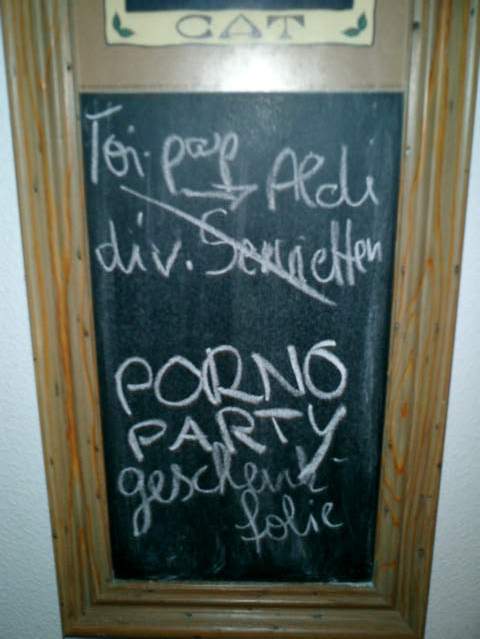 CAT
Toi. pap
→ Aldi
div. Servietten
PORNO
PARTY
geschenk-
folie